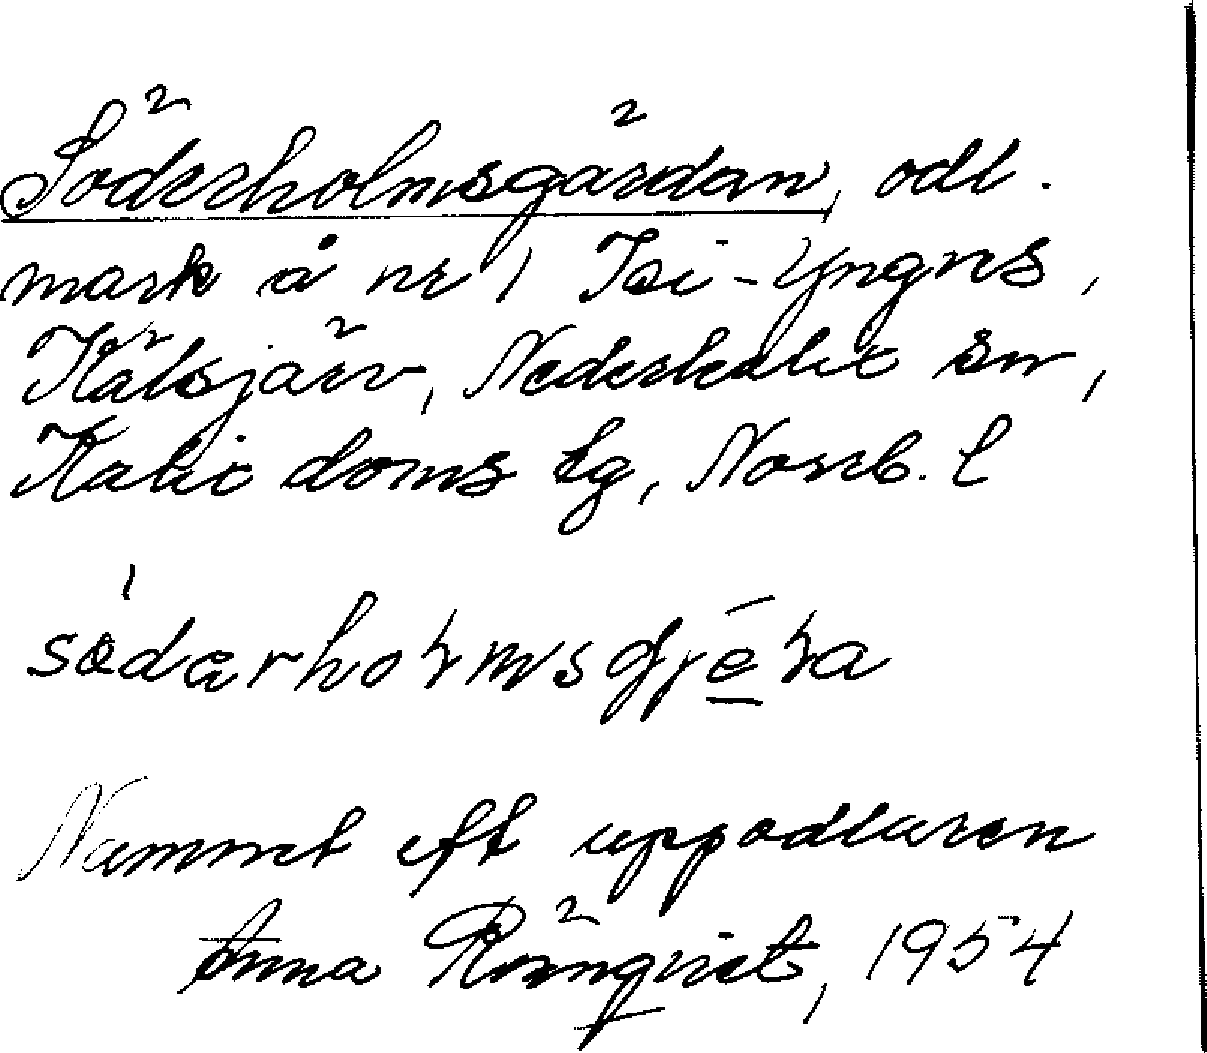 Söderholmsgärdan, odl.
mark å nr 1 Isi-Yngns,
Kälsjärv, Nederkalix sn,
Kalix doms lg, Norrb. l
Namnet eft uppodlaren
Anna Rönnqvist, 1954